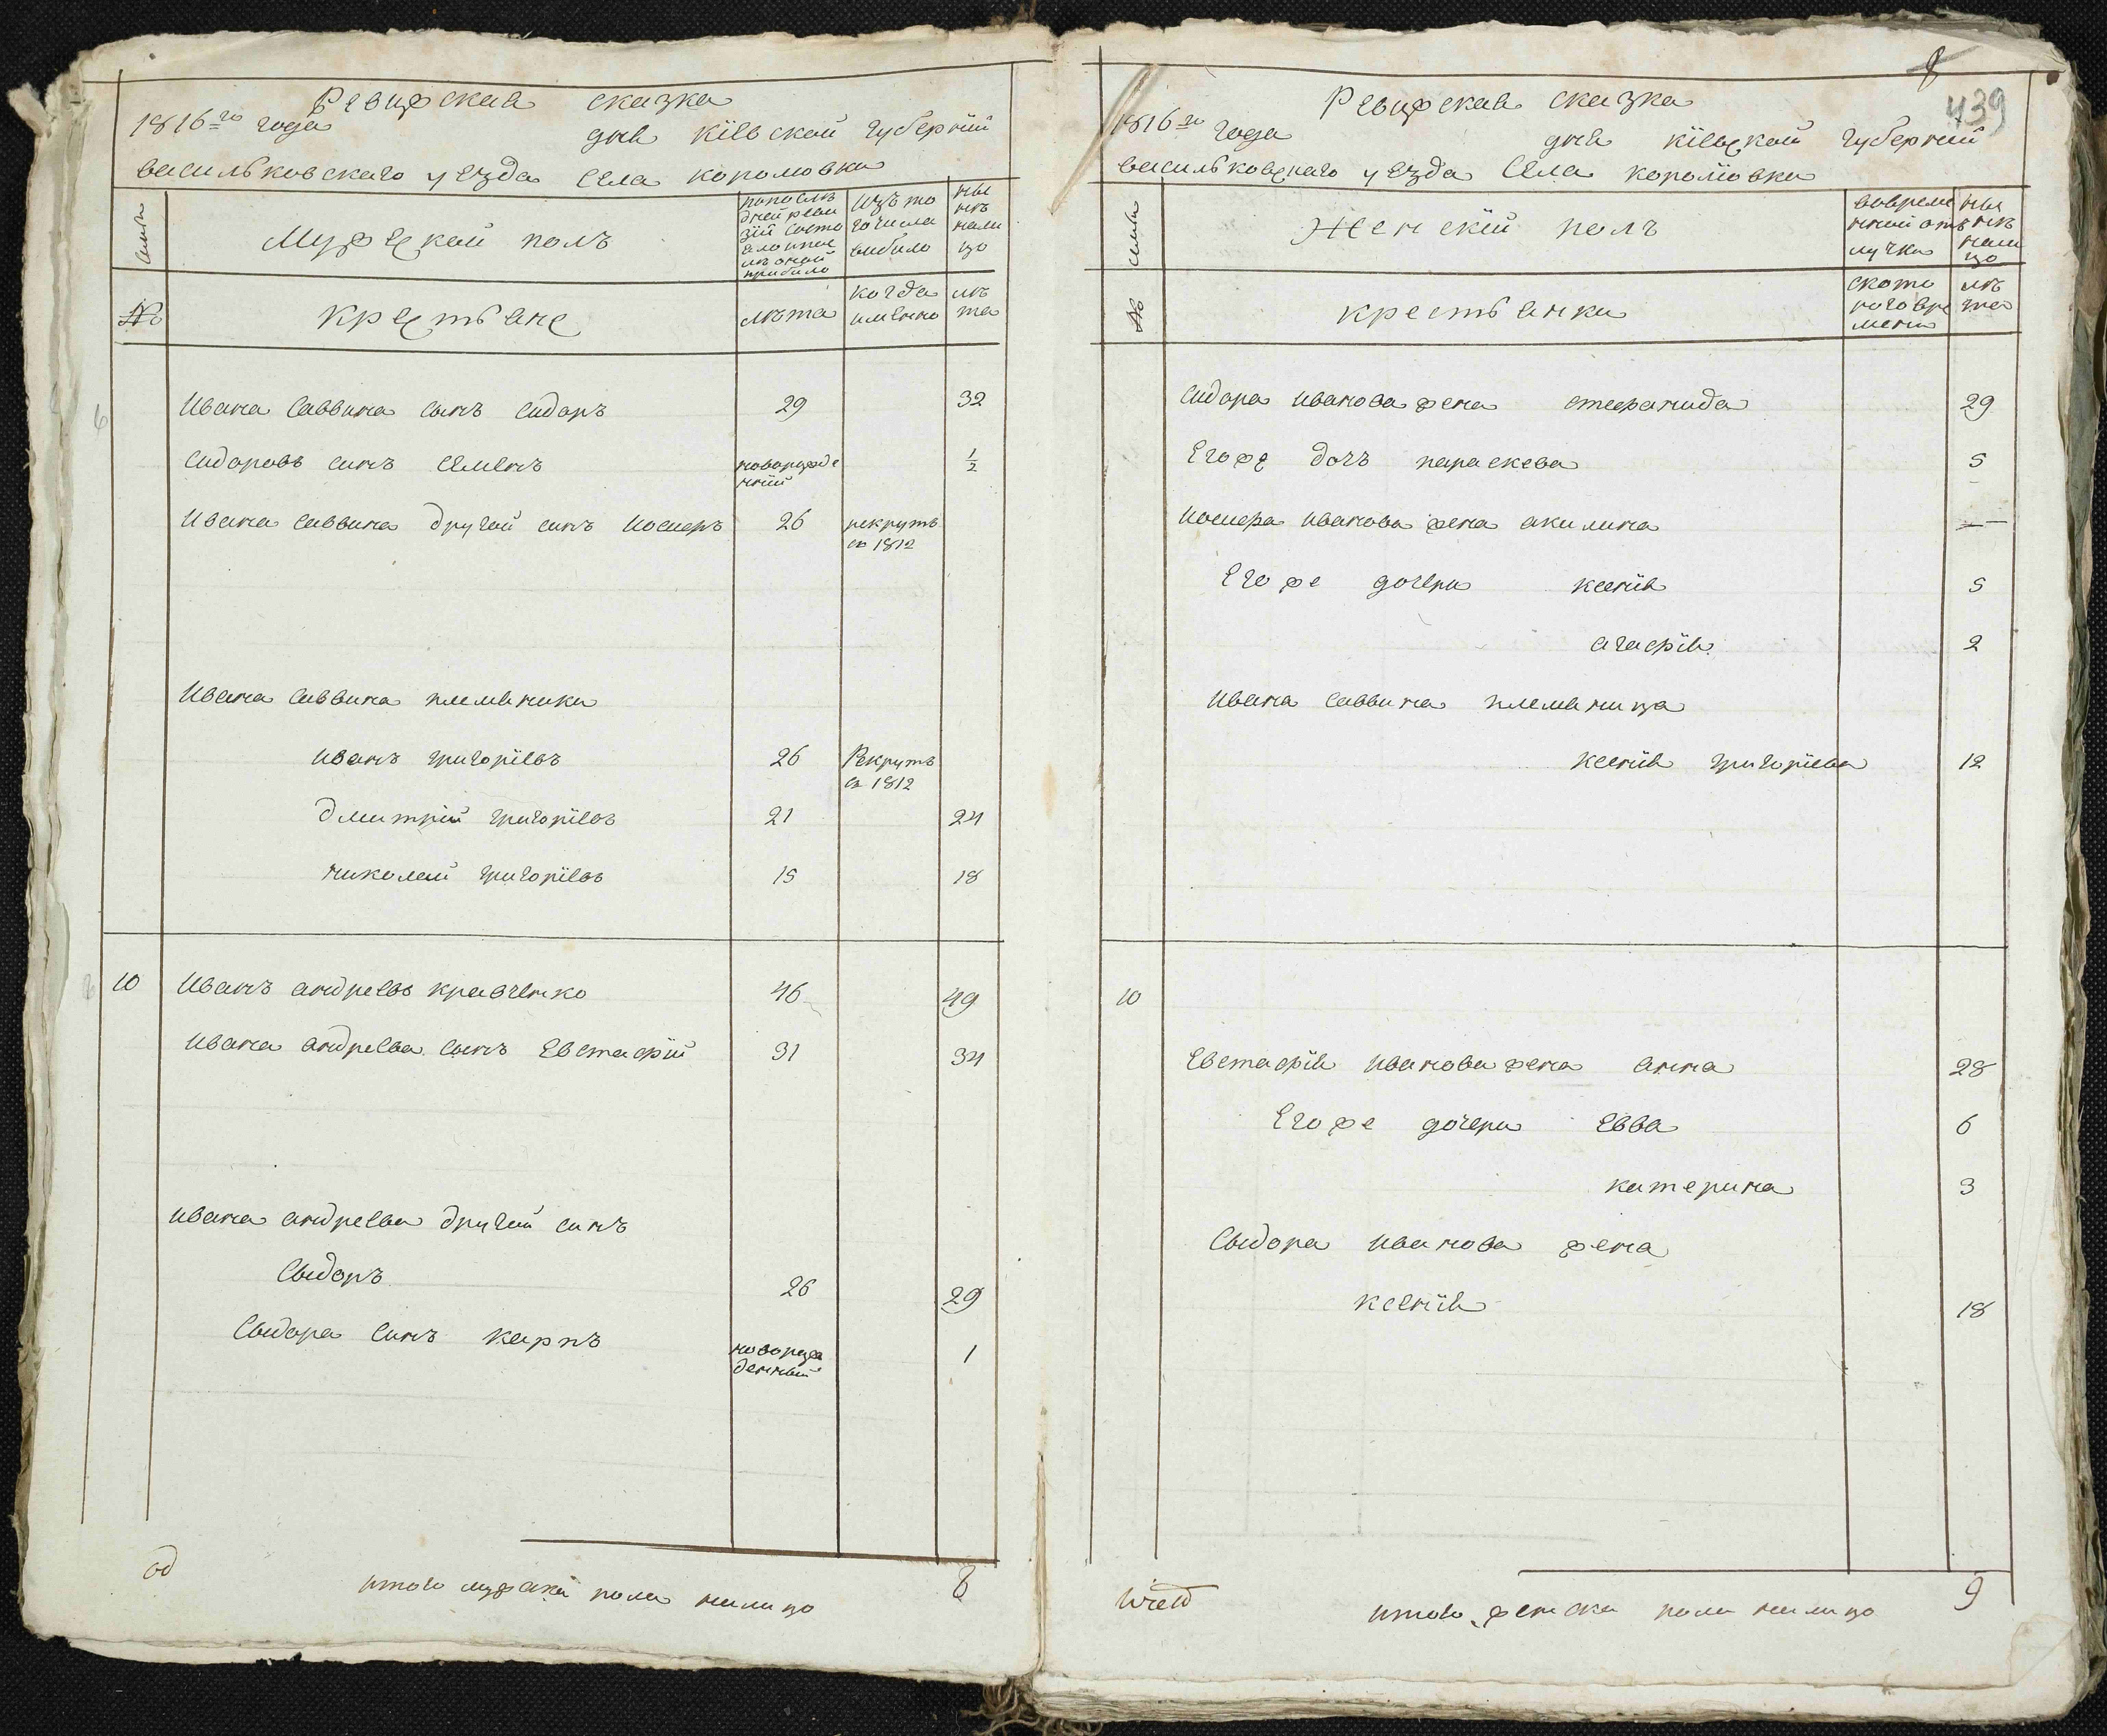 Ревизская сказка
1816=го года дня Кіевской губерніи
васильковского уезда села королювки
семьи
Мужеской полъ
попослѣ
дней реви
зіи состо
яло ипос
лѣ оной
прибыло
изъ то
го числа
выбыло
ны
нѣ
нали
цо
№
крестьяне
лѣта
когда
имянно
лѣ
та
Ивана Саввина сынъ Сидоръ 29 32
Сидоровъ синъ Семенъ новорожде
нній 1/2
Ивана Саввина другой синъ Иосифъ 26 рекрутъ
въ 1812
Ивана Саввина племяники
Иванъ григоріевъ 26 Рекрутъ
въ 1812
Дмитрій григоріевъ 21 24
николай григоріевъ 15 18
10 Иванъ андреевъ кравченко 46 49
Ивана андреева сынъ Евстафій 31 34
Ивана андреева другій синъ
Сыдоръ 26 29
Сыдора синъ карпъ новорож
денный 1
итого мужска пола налицо 8
8
439
Ревизская сказка
1816=го года дня Кіевской губерніи
васильковского уезда Села королювки
семьи
Женскій полъ
вовреме
нной от
лучки
ны
нѣ
нали
цо
№
крестьянки
ското
рого вре
мени
лѣ
та
Сидора Иванова жена степанида 29
Его же дочъ параскева 5
Иосифа Иванова жена акилина —
Его же дочери ксенія 5
агафія 2
Ивана Саввина племяница
ксенія григоріева 12
10
Евстафія Иванова жена анна 28
Его же дочери Евва 6
катерина 3
Сыдора Иванова жена
ксенія 18
итого женска пола налицо 9